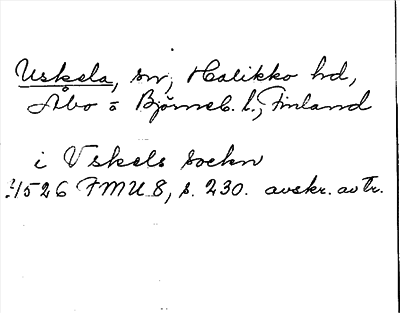 Uskela, sn, Halikko hd,
Åbo o Björneb. l., Finland
i Vskels sockn
1526 FMU 8, s. 230. avskr. av tr.